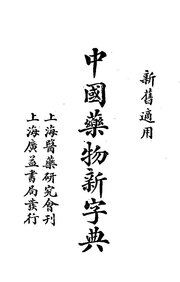 新舊適用
中國藥物新字典
上海醫藥研究會刊
上海廣益書局發行